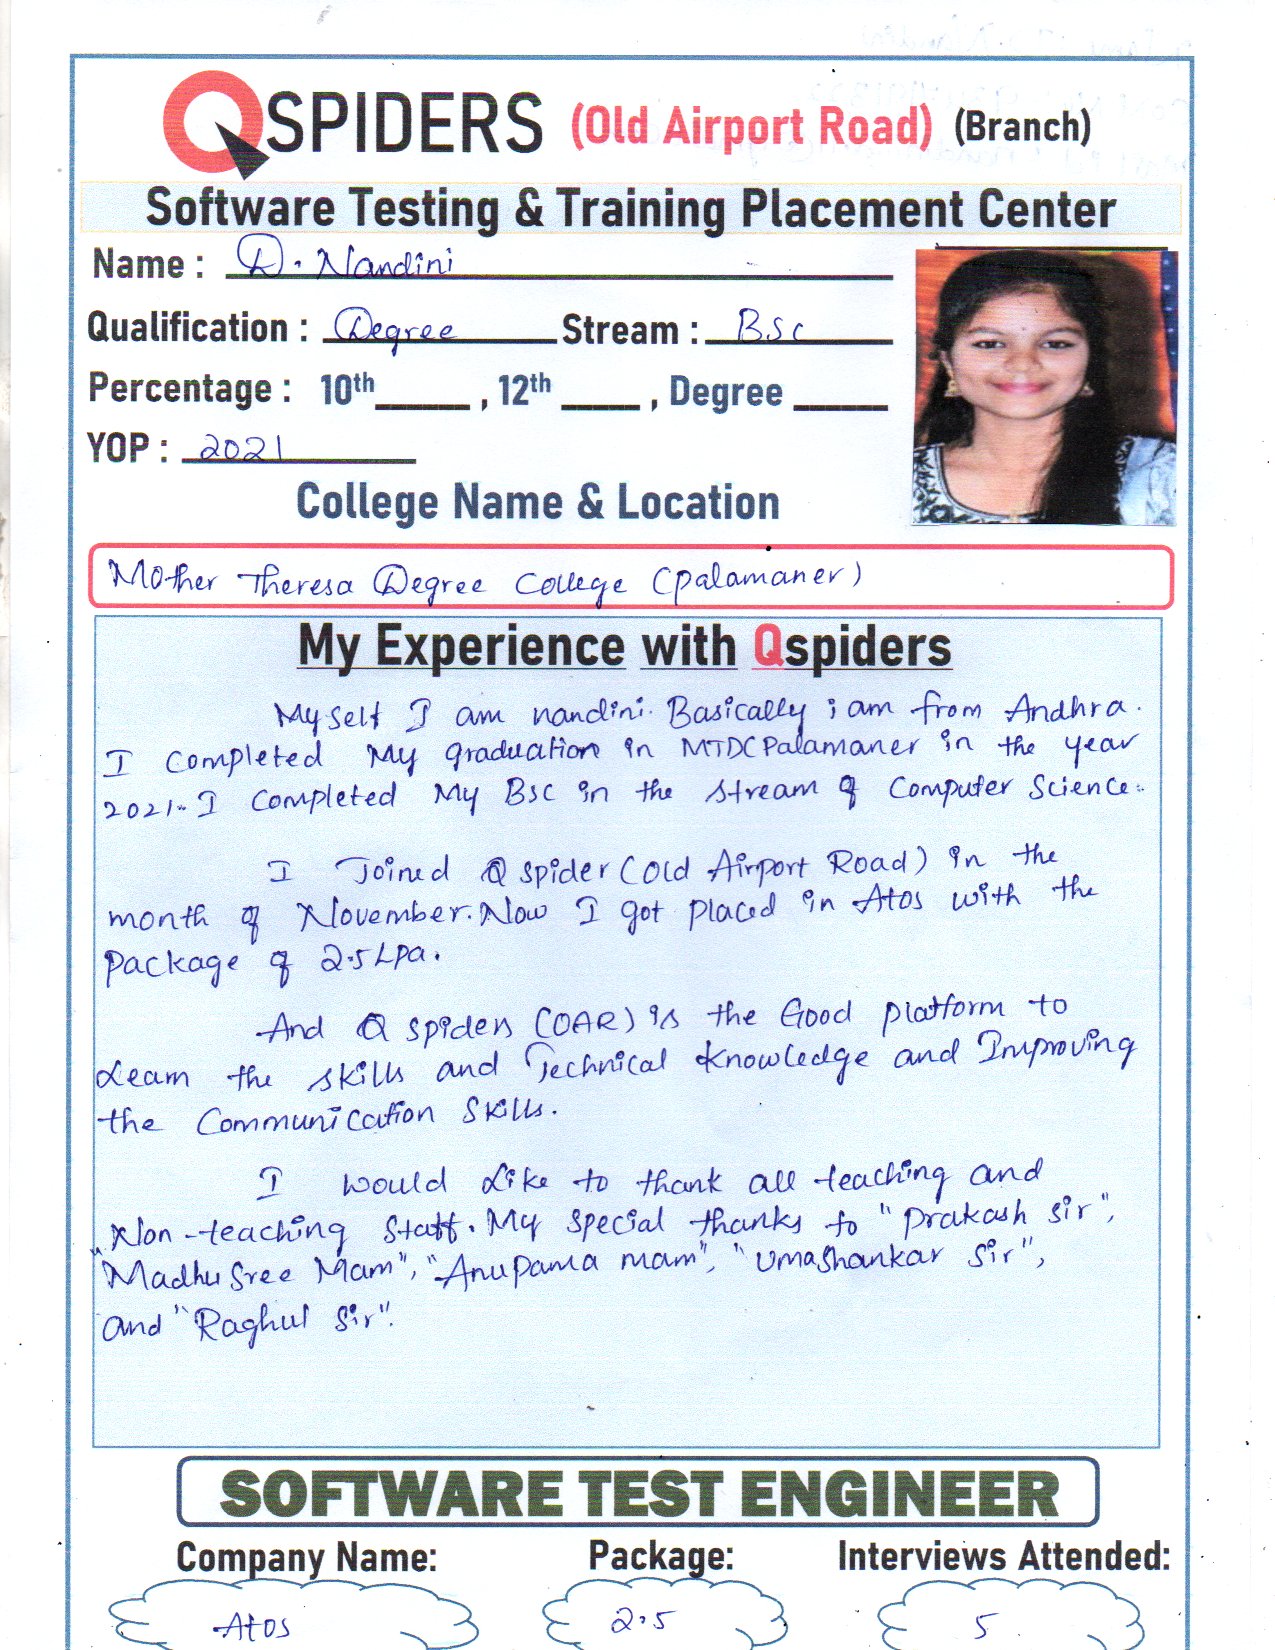 QSPIDERS (Old Airport Road) (Branch)
Software Testing & Training Placement Center
Name : D. Nandini
Qualification : Degree Stream : B.Sc
Percentage : 10th____ , 12th ____ , Degree ____
YOP : 2021
College Name & Location
Mother Theresa Degree College (palamaner)
My Experience with Qspiders
Myself I am nandini. Basically i am from Andhra.
I completed My graduation in MTDC Palamaner in the year
2021. I completed My Bsc in the stream of Computer Science.
I Joined Q spider (Old Airport Road) in the
month of November. Now I got placed in Atos with the
package of 2.5 Lpa.
And Q spiders (OAR) is the Good platform to
Learn the skills and Technical knowledge and Improving
the Communication Skills.
I would like to thank all teaching and
Non-teaching Staff. My special thanks to "prakash sir",
"Madhu Sree Mam", "Anupama mam", "Umashankar Sir",
and "Raghul Sir".
SOFTWARE TEST ENGINEER
Company Name: Package: Interviews Attended:
Atos 2.5 5